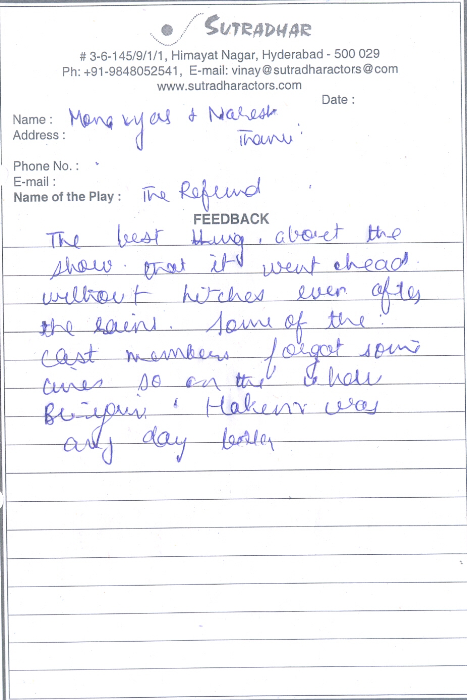 SUTRADHAR
# 3-6-145/9/1/1, Himayat Nagar, Hyderabad - 500 029
Ph: +91-9848052541, E-mail: vinay@sutradharactors@com
www.sutradharactors.com
Date :
Name : Mona vyas & Naresh
Address : Thanvi
Phone No. :
E-mail :
Name of the Play : The Refund
FEEDBACK
The best thing about the
show. that it went ahead
without hitches even after
the rains. Some of the
cast members forgot some
cues so on the whole
was
any day